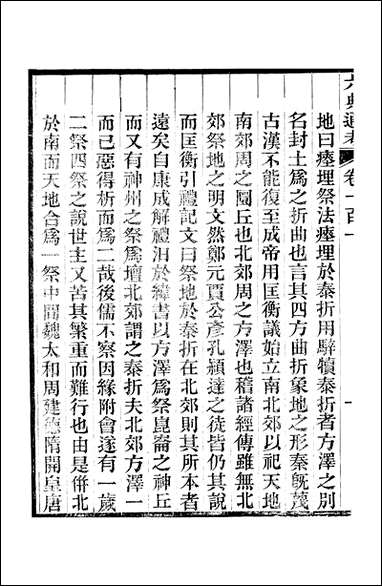 六典通考　卷一百一　一
地曰瘞埋祭法瘞埋於泰折用騂犢泰折者方澤之別
名封土爲之折曲也言其四方曲折象地之形秦旣蔑
古漢不能復至成帝用匡衡議始立南北郊以祀天地
南郊周之圜丘也北郊周之方澤也稽諸經傳雖無北
郊祭地之明文然鄭元賈公彥孔穎達之徒皆仍其說
而匡衡引禮記文曰祭地於泰折在北郊則其所本者
遠矣自康成解禮汨於緯書以方澤爲祭崑崙之神丘
而又有神州之祭爲壇北郊謂之泰折夫北郊方澤一
而已惡得析而爲二哉後儒不察因緣附會遂有一歲
二祭四祭之說世主又苦其繁重而難行也由是併北
於南而天地合爲一祭中閒魏太和周建德隋開皇唐